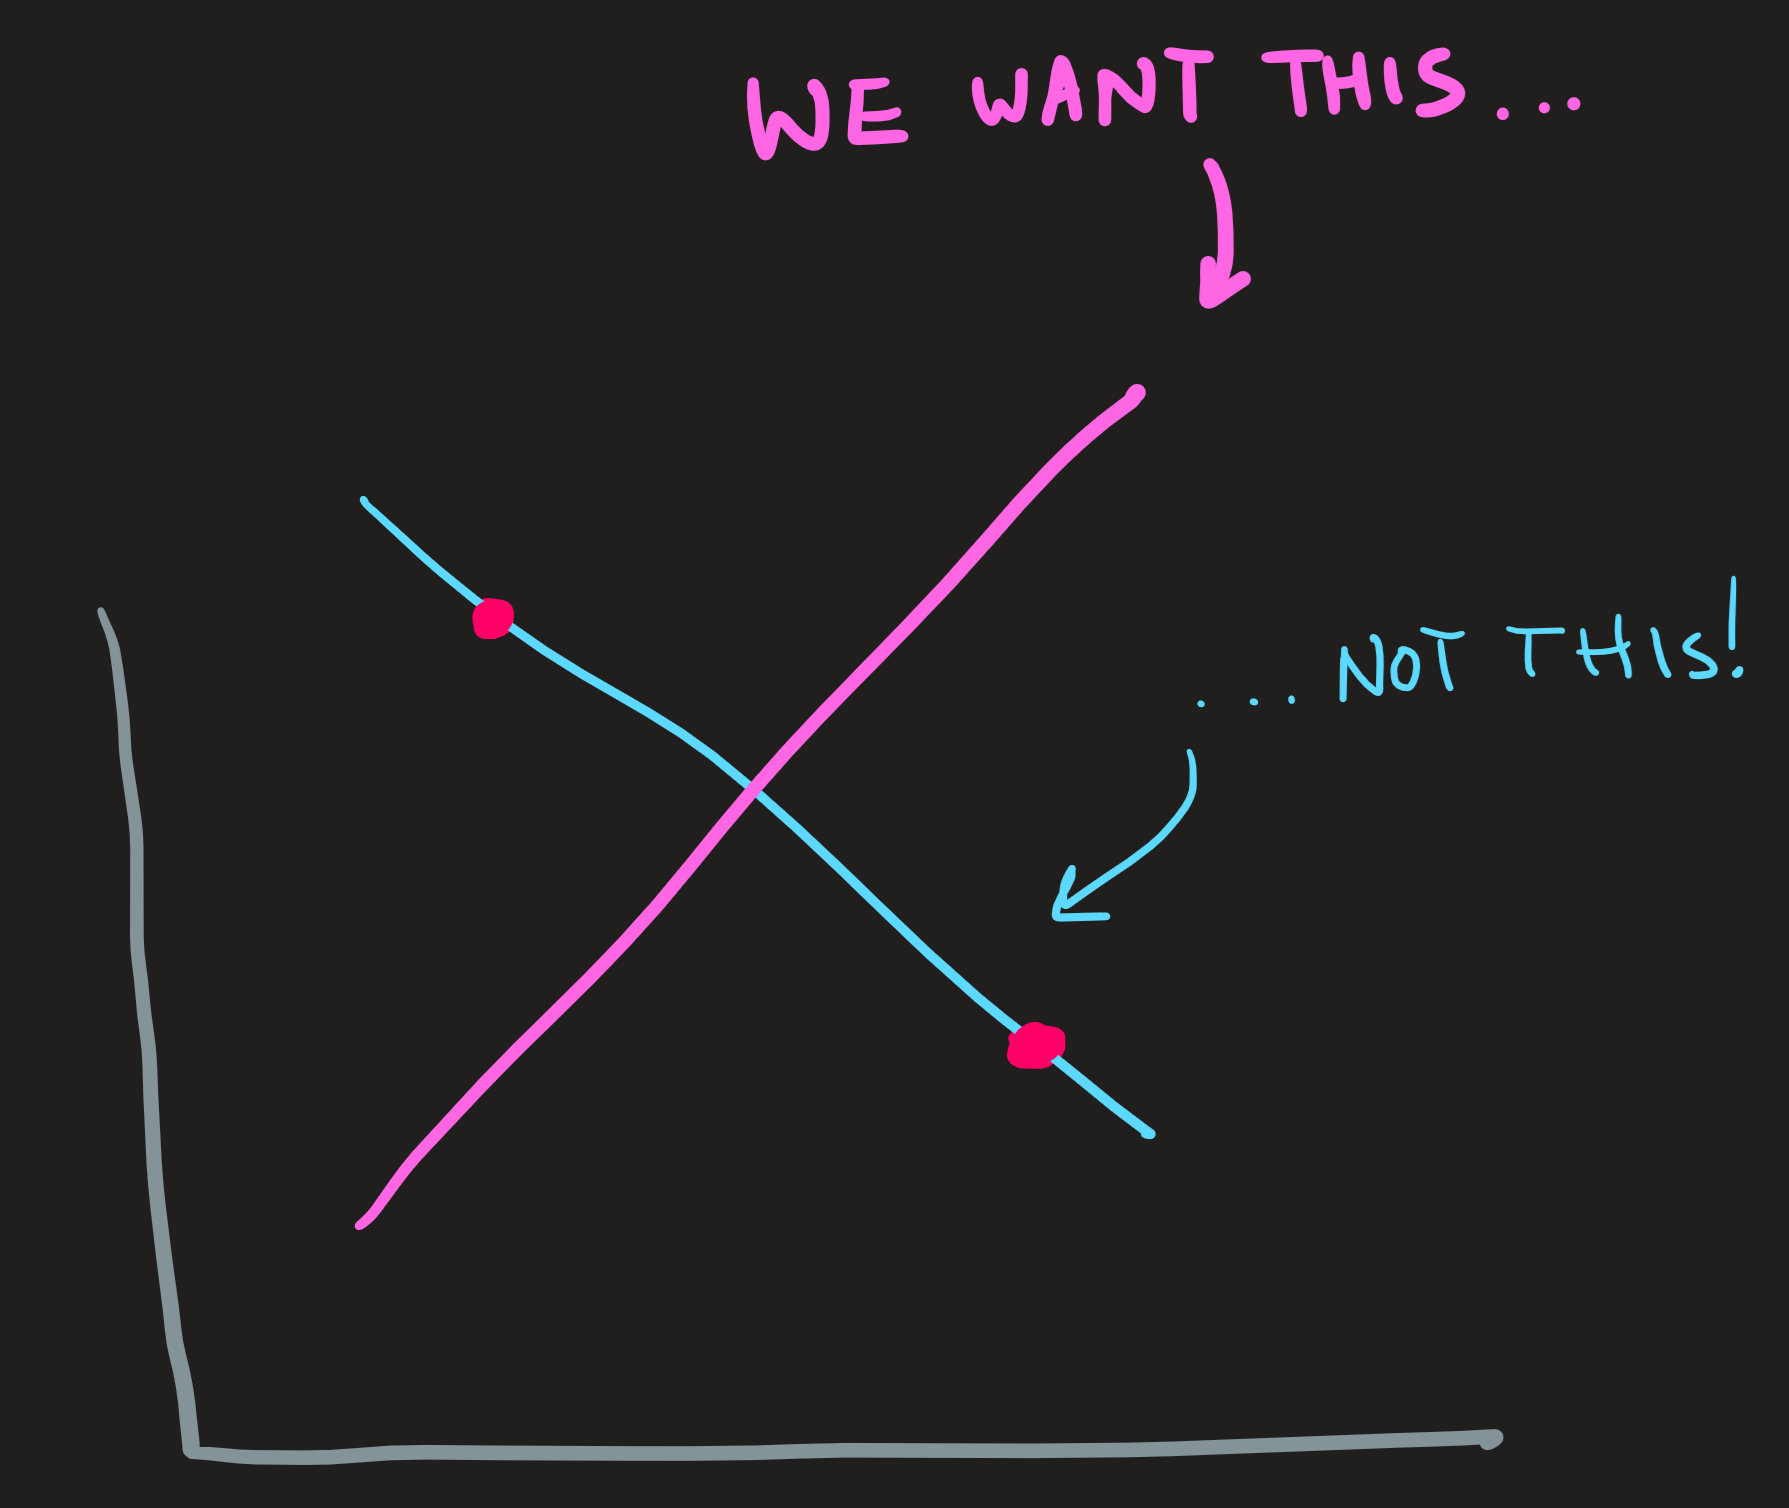 WE WANT THIS...
...NOT THIS!